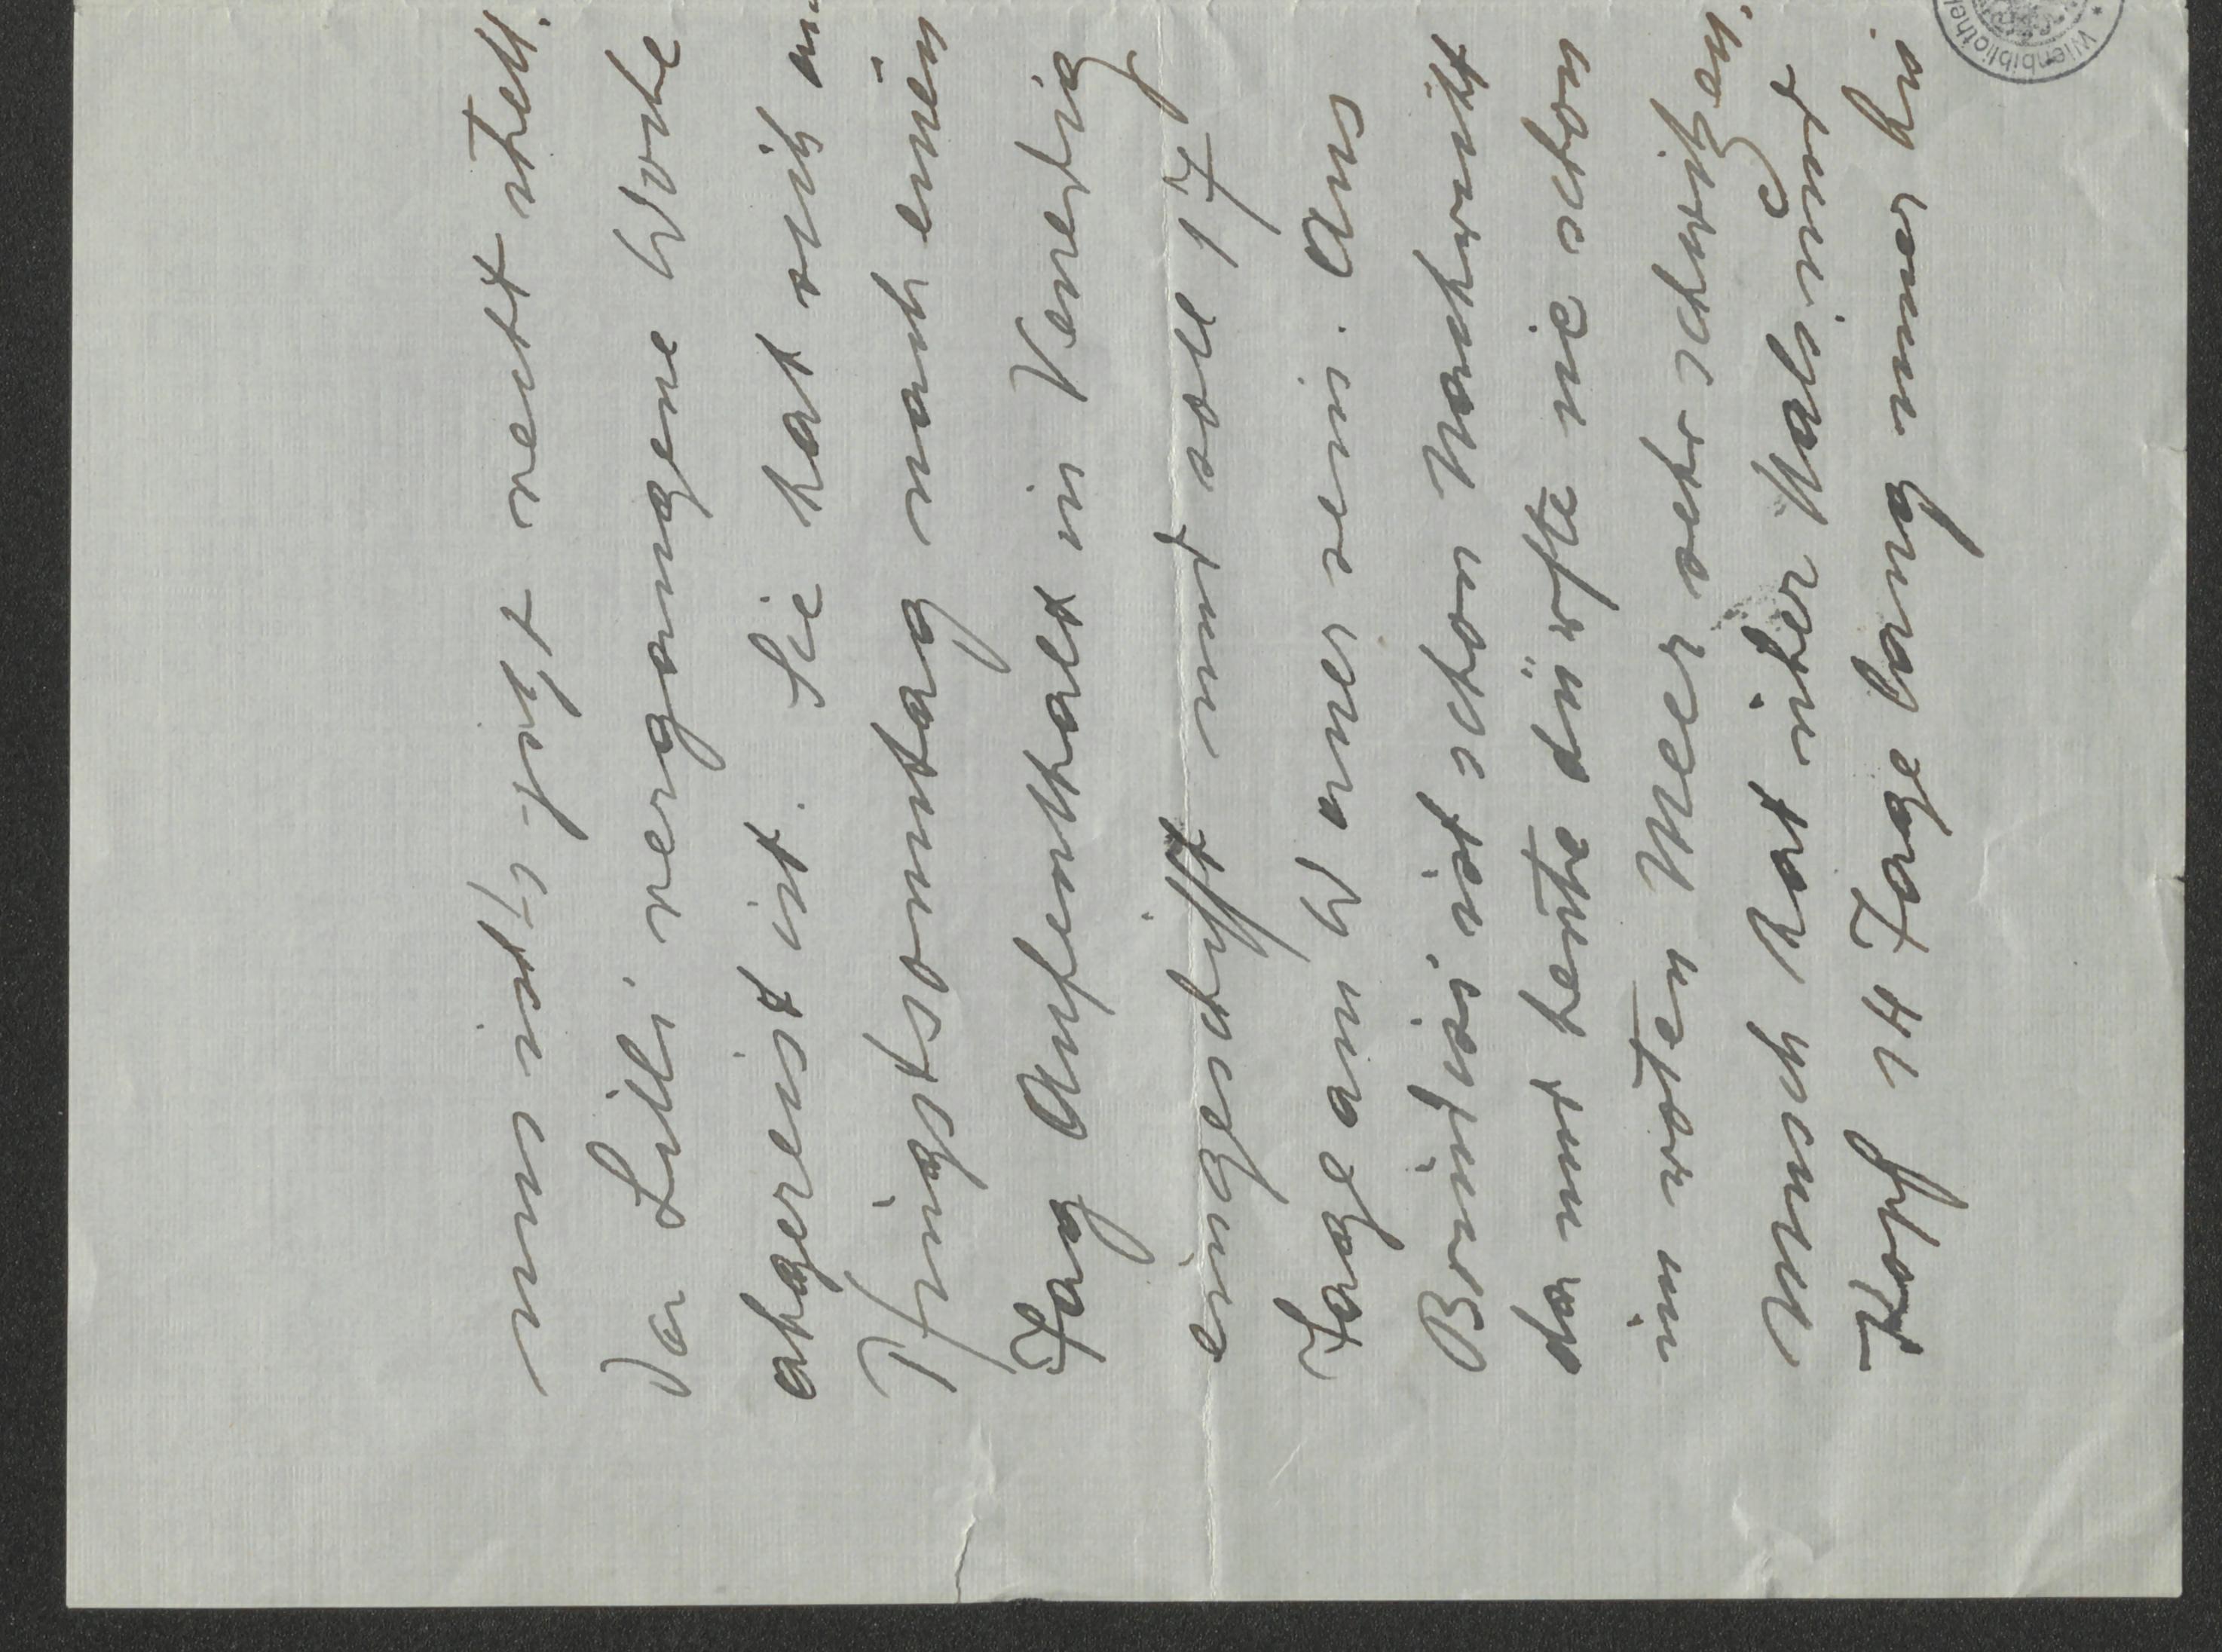 uns ist's jetzt recht still.
da Lilli vergangene Woche
abgereist ist. Sie hat sich am
Pfingstsonntag nach einem
Tag Aufenthalt in Venedig
eingeschifft und soll 17
Tage am Wasser sein. Aus
Brindisi ist schon Nachricht
da und heute dürfte sie schon
im roten Meer sehr schwitzen.
Munsch hat über Kalmus'
Kopf 14 Tage lang
Wienbibliothek